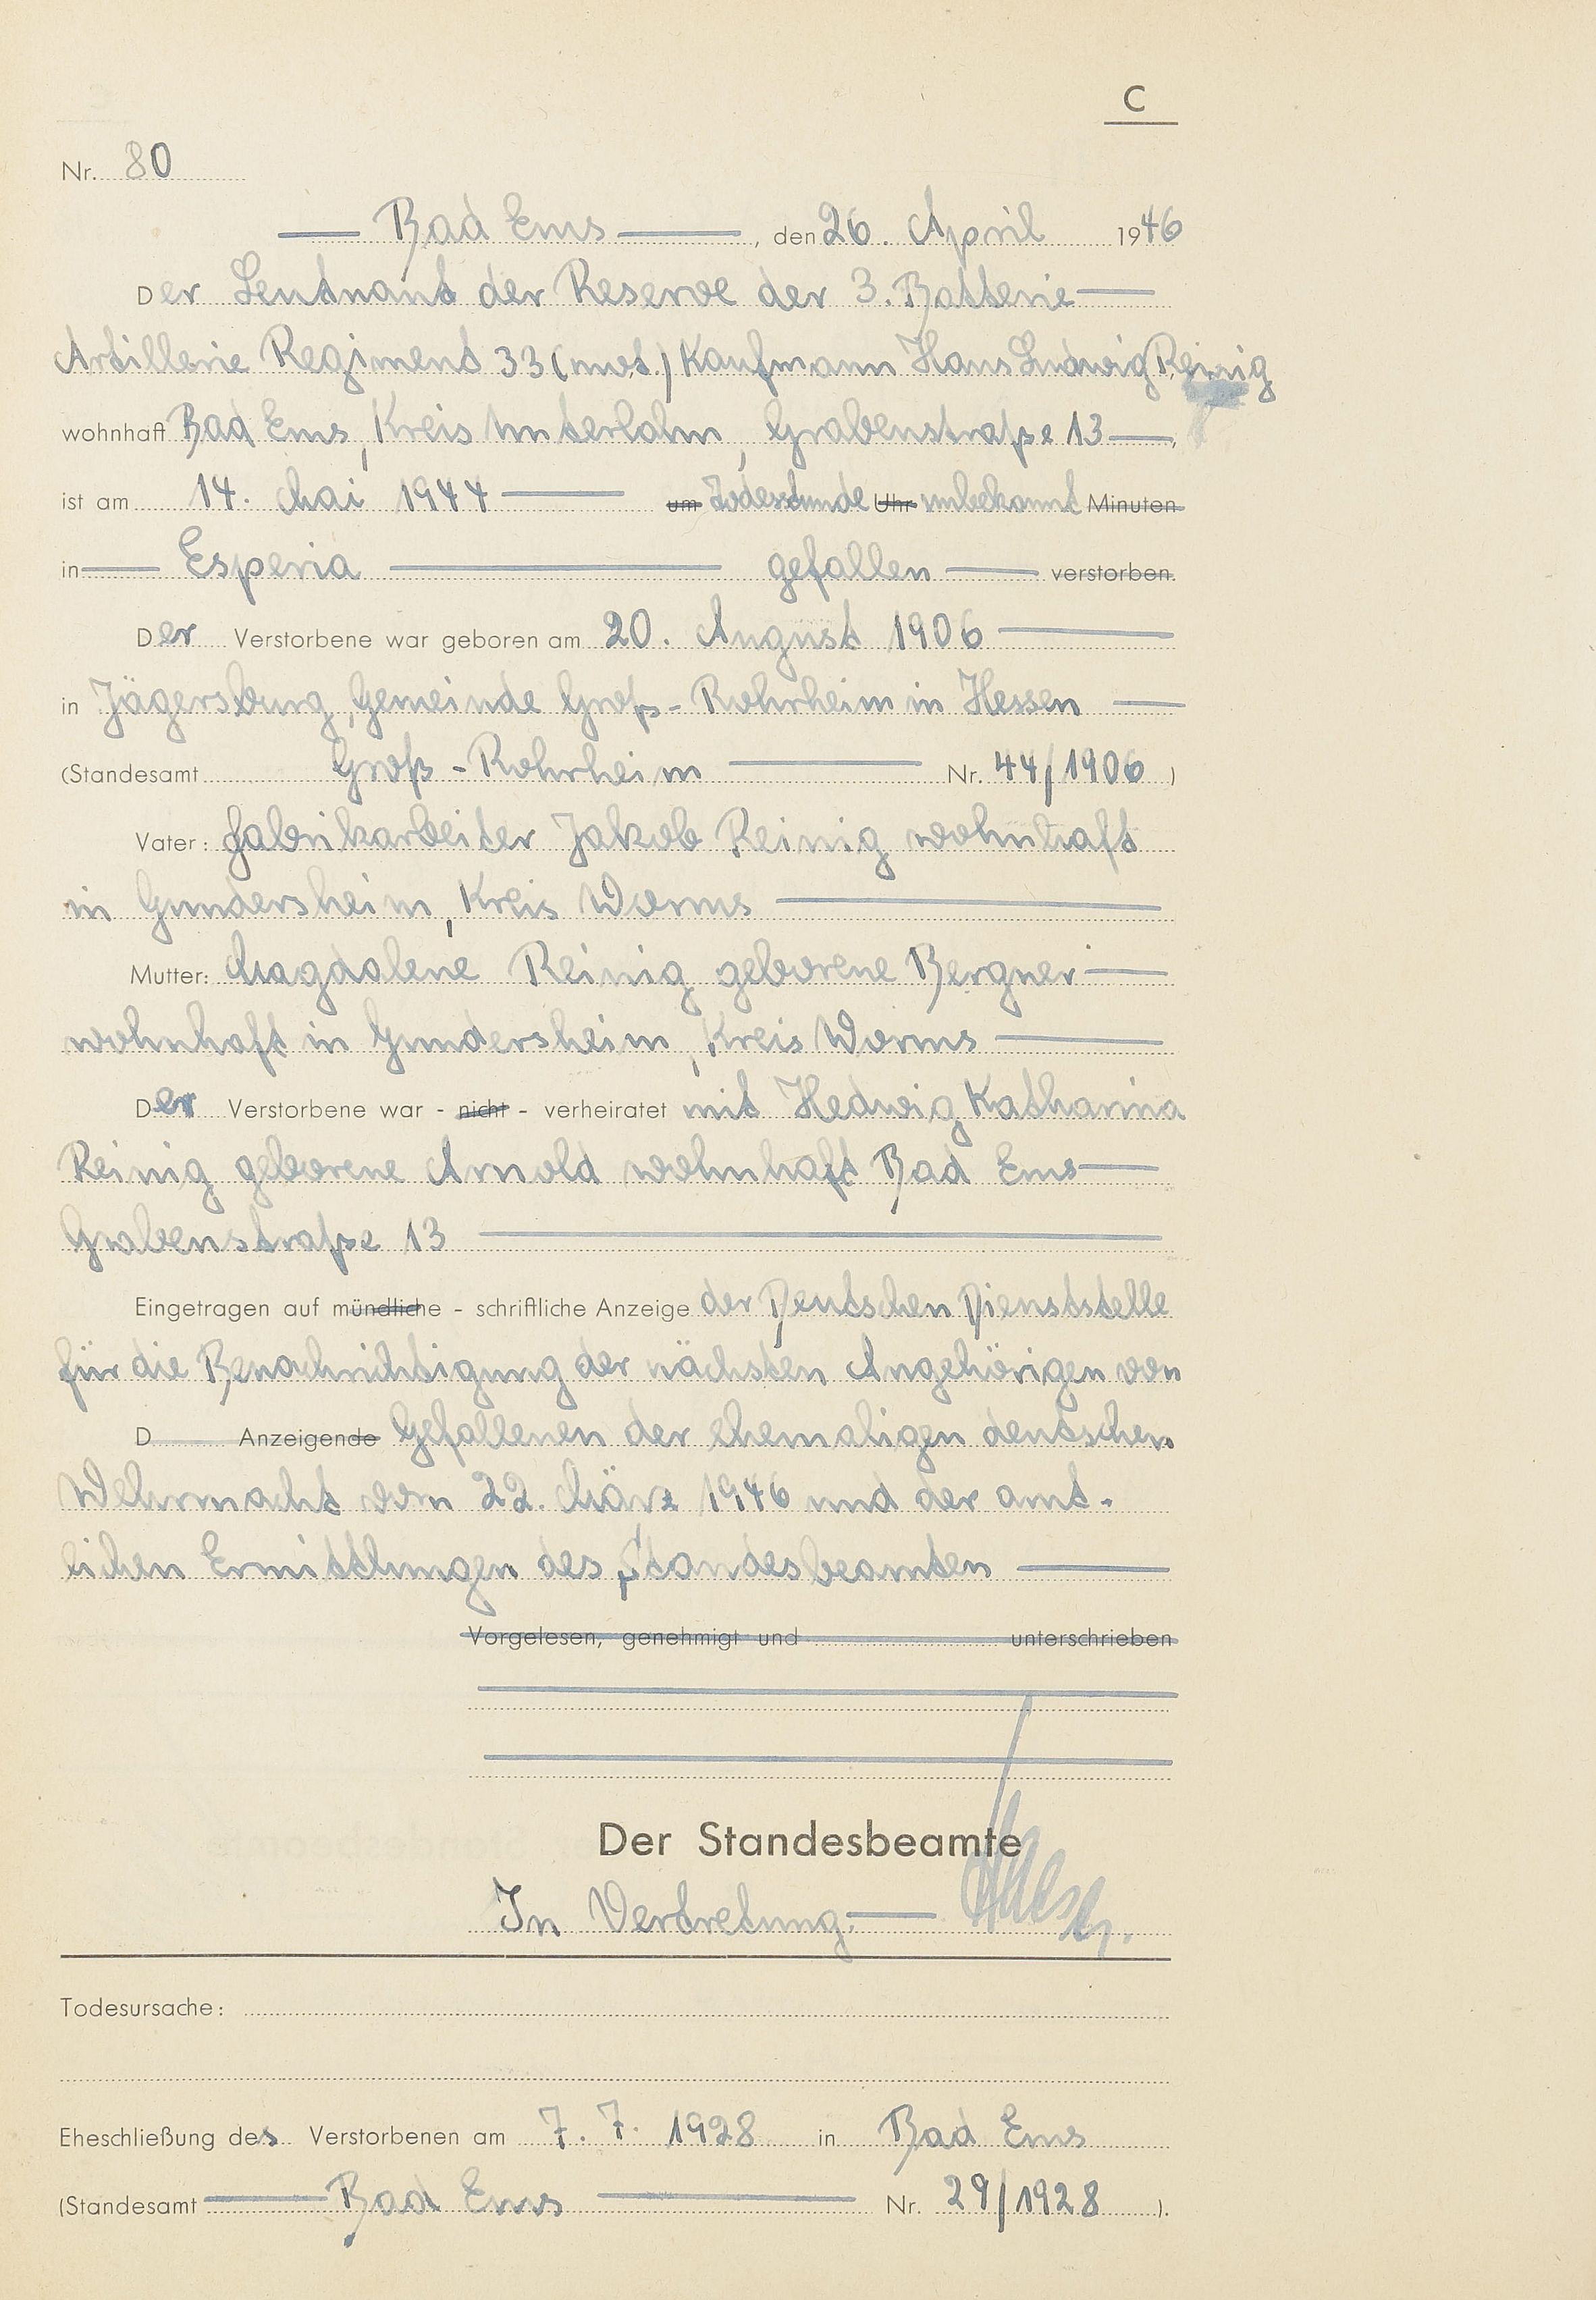 C
Nr. 80
Bad Ems, den 26. April 1946
Der Leutnant der Reserve der 3. Batterie
Artillerie Regiment 33 (mot.) Kaufmann Hans Ludwig Reinig
wohnhaft Bad Ems, Kreis Unterlahn, Grabenstraße 13,
ist am 14. Mai 1944 um Todesstunde Uhr unbekannt Minuten
in Esperia gefallen verstorben.
Der Verstorbene war geboren am 20. August 1906
in Jägersburg, Gemeinde Groß-Rohrheim in Hessen
(Standesamt Groß-Rohrheim Nr. 44/1906)
Vater: Fabrikarbeiter Jakob Reinig wohnhaft
in Gundersheim, Kreis Worms
Mutter: Magdalene Reinig geborene Bergner
wohnhaft in Gundersheim, Kreis Worms
Der Verstorbene war - nicht - verheiratet mit Hedwig Katharina
Reinig geborene Arnold wohnhaft Bad Ems
Grabenstraße 13
Eingetragen auf mündliche - schriftliche Anzeige der Deutschen Dienststelle
für die Benachrichtigung der nächsten Angehörigen von
D Anzeigende Gefallenen der ehemaligen deutschen
Wehrmacht vom 22. März 1946 und der amt-
lichen Ermittlungen des Standesbeamten
Vorgelesen, genehmigt und unterschrieben
Der Standesbeamte
In Vertretung.
Todesursache:
Eheschließung des Verstorbenen am 7. 7. 1928 in Bad Ems
(Standesamt Bad Ems Nr. 29/1928).